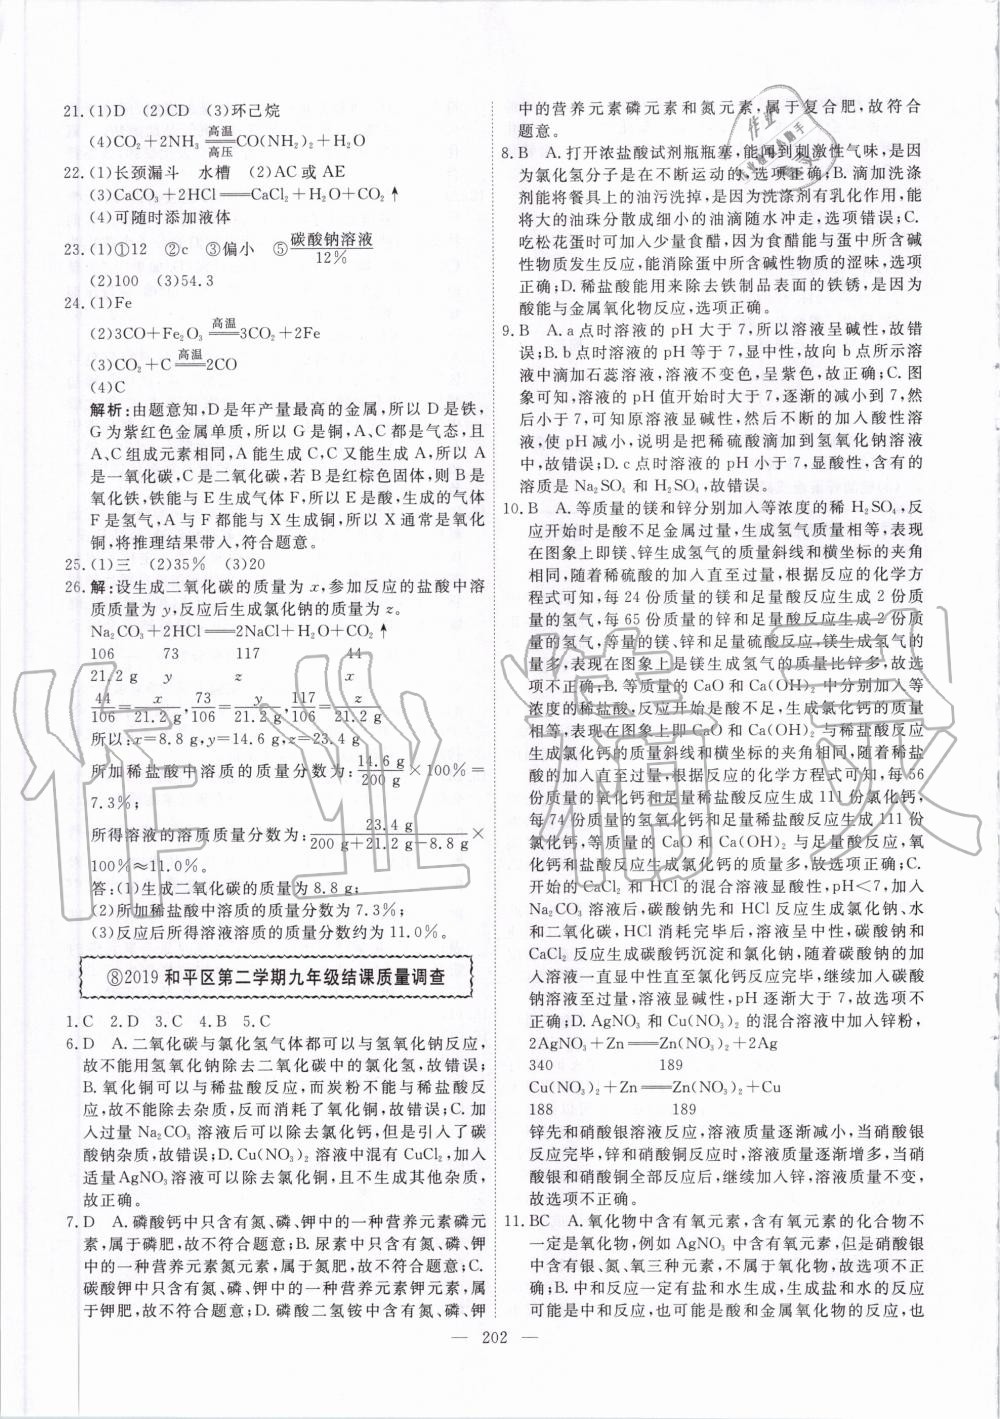 21. (1)D (2)CD (3)环己烷
(4)CO₂+2NH₃ 高温/高压 CO(NH₂)₂+H₂O
22. (1)长颈漏斗 水槽 (2)AC或AE
(3)CaCO₃+2HCl══CaCl₂+H₂O+CO₂↑
(4)可随时添加液体
23. (1)①12 ②c ③偏小 ⑤碳酸钠溶液/12%
(2)100 (3)54.3
24. (1)Fe
(2)3CO+Fe₂O₃ 高温══ 3CO₂+2Fe
(3)CO₂+C 高温══ 2CO
(4)C
解析:由题意知,D是年产量最高的金属,所以D是铁,
G为紫红色金属单质,所以G是铜,A、C都是气态,且
A、C组成元素相同,A能生成C、C又能生成A,所以A
是一氧化碳,C是二氧化碳,若B是红棕色固体,则B是
氧化铁,铁能与E生成气体F,所以E是酸,生成的气体
F是氢气,A与F都能与X生成铜,所以X通常是氧化
铜,将推理结果带入,符合题意。
25. (1)三 (2)35% (3)20
26. 解:设生成二氧化碳的质量为x,参加反应的盐酸中溶
质质量为y,反应后生成氯化钠的质量为z。
Na₂CO₃+2HCl══2NaCl+H₂O+CO₂↑
106 73 117 44
21.2 g y z x
44/106=x/21.2 g,73/106=y/21.2 g,117/106=z/21.2 g
所以:x=8.8 g,y=14.6 g,z=23.4 g
所加稀盐酸中溶质的质量分数为:14.6 g/200 g×100%=
7.3%;
所得溶液的溶质质量分数为:23.4 g/200 g+21.2 g-8.8 g×
100%≈11.0%。
答:(1)生成二氧化碳的质量为8.8 g;
(2)所加稀盐酸中溶质的质量分数为7.3%;
(3)反应后所得溶液溶质的质量分数约为11.0%。
⑧2019和平区第二学期九年级结课质量调查
1. C 2. D 3. C 4. B 5. C
6. D A. 二氧化碳与氯化氢气体都可以与氢氧化钠反应,
故不能用氢氧化钠除去二氧化碳中的氯化氢,故错误;
B. 氧化铜可以与稀盐酸反应,而炭粉不能与稀盐酸反
应,故不能除去杂质,反而消耗了氧化铜,故错误;C. 加
入过量Na₂CO₃溶液后可以除去氯化钙,但是引入了碳
酸钠杂质,故错误;D. Cu(NO₃)₂溶液中混有CuCl₂,加入
适量AgNO₃溶液可以除去氯化铜,且不生成其他杂质,
故正确。
7. D A. 磷酸钙中只含有氮、磷、钾中的一种营养元素磷元
素,属于磷肥,故不符合题意;B. 尿素中只含有氮、磷、钾
中的一种营养元素氮元素,属于氮肥,故不符合题意;C.
碳酸钾中只含有氮、磷、钾中的一种营养元素钾元素,属
于钾肥,故不符合题意;D. 磷酸二氢铵中含有氮、磷、钾
中的营养元素磷元素和氮元素,属于复合肥,故符合
题意。
8. B A. 打开浓盐酸试剂瓶瓶塞,能闻到刺激性气味,是因
为氯化氢分子是在不断运动的,选项正确;B. 滴加洗涤
剂能将餐具上的油污洗掉,是因为洗涤剂有乳化作用,能
将大的油珠分散成细小的油滴随水冲走,选项错误;C.
吃松花蛋时可加入少量食醋,因为食醋能与蛋中所含碱
性物质发生反应,能消除蛋中所含碱性物质的涩味,选项
正确;D. 稀盐酸能用来除去铁制品表面的铁锈,是因为
酸能与金属氧化物反应,选项正确。
9. B A. a点时溶液的pH大于7,所以溶液呈碱性,故错
误;B. b点时溶液的pH等于7,显中性,故向b点所示溶
液中滴加石蕊溶液,溶液不变色,呈紫色,故正确;C. 图
象可知,溶液的pH值开始时大于7,逐渐的减小到7,然
后小于7,可知原溶液显碱性,然后不断的加入酸性溶
液,使pH减小,说明是把稀硫酸滴加到氢氧化钠溶液
中,故错误;D. c点时溶液的pH小于7,显酸性,含有的
溶质是Na₂SO₄和H₂SO₄,故错误。
10. B A. 等质量的镁和锌分别加入等浓度的稀H₂SO₄,反
应开始时是酸不足金属过量,生成氢气质量相等,表现
在图象上即镁、锌生成氢气的质量斜线和横坐标的夹角
相同,随着稀硫酸的加入直至过量,根据反应的化学方
程式可知,每24份质量的镁和足量酸反应生成2份质
量的氢气,每65份质量的锌和足量酸反应生成2份质
量的氢气,等量的镁、锌和足量硫酸反应,镁生成氢气的
量多,表现在图象上是镁生成氢气的质量比锌多,故选
项不正确;B. 等质量的CaO和Ca(OH)₂中分别加入等
浓度的稀盐酸,反应开始是酸不足,生成氯化钙的质量
相等,表现在图象上即CaO和Ca(OH)₂与稀盐酸反应
生成氯化钙的质量斜线和横坐标的夹角相同,随着稀盐
酸的加入直至过量,根据反应的化学方程式可知,每56
份质量的氧化钙和足量稀盐酸反应生成111份氯化钙,
每74份质量的氢氧化钙和足量稀盐酸反应生成111份
氯化钙,等质量的CaO和Ca(OH)₂与足量酸反应,氧
化钙和盐酸反应生成氯化钙的质量多,故选项正确;C.
开始的CaCl₂和HCl的混合溶液显酸性,pH<7,加入
Na₂CO₃溶液后,碳酸钠先和HCl反应生成氯化钠、水
和二氧化碳,HCl消耗完毕后,溶液呈中性,碳酸钠和
CaCl₂反应生成碳酸钙沉淀和氯化钠。随着碳酸钠的
加入溶液一直显中性直至氯化钙反应完毕,继续加入碳酸
钠溶液至过量,溶液显碱性,pH逐渐大于7,故选项不
正确;D. AgNO₃和Cu(NO₃)₂的混合溶液中加入锌粉,
2AgNO₃+Zn══Zn(NO₃)₂+2Ag
340 189
Cu(NO₃)₂+Zn══Zn(NO₃)₂+Cu
188 189
锌先和硝酸银溶液反应,溶液质量逐渐减小,当硝酸银
反应完毕,锌和硝酸铜反应时,溶液质量逐渐增多,当硝
酸银和硝酸铜全部反应后,继续加入锌,溶液质量不变。
故选项不正确。
11. BC A. 氧化物中含有氧元素,含有氧元素的化合物不
一定是氧化物,例如AgNO₃中含有氧元素,但是硝酸银
中含有银、氮、氧三种元素,不属于氧化物,故选项不正
确;B. 中和反应一定有盐和水生成,生成盐和水的反应
可能是中和反应,也可能是酸和金属氧化物的反应,也
— 202 —
作业精灵